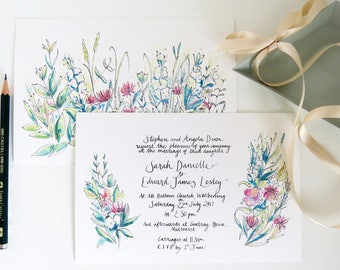 Stephen and Angela Dixon
request the pleasure of your company
at the marriage of their daughter
Sarah Danielle
to
Edward James Lesley
to All Saints Church,
Saturday 22nd July 2017
at 2.30 pm
and afterwards at House,
Carriages at 11.30pm
RSVP by 1st June